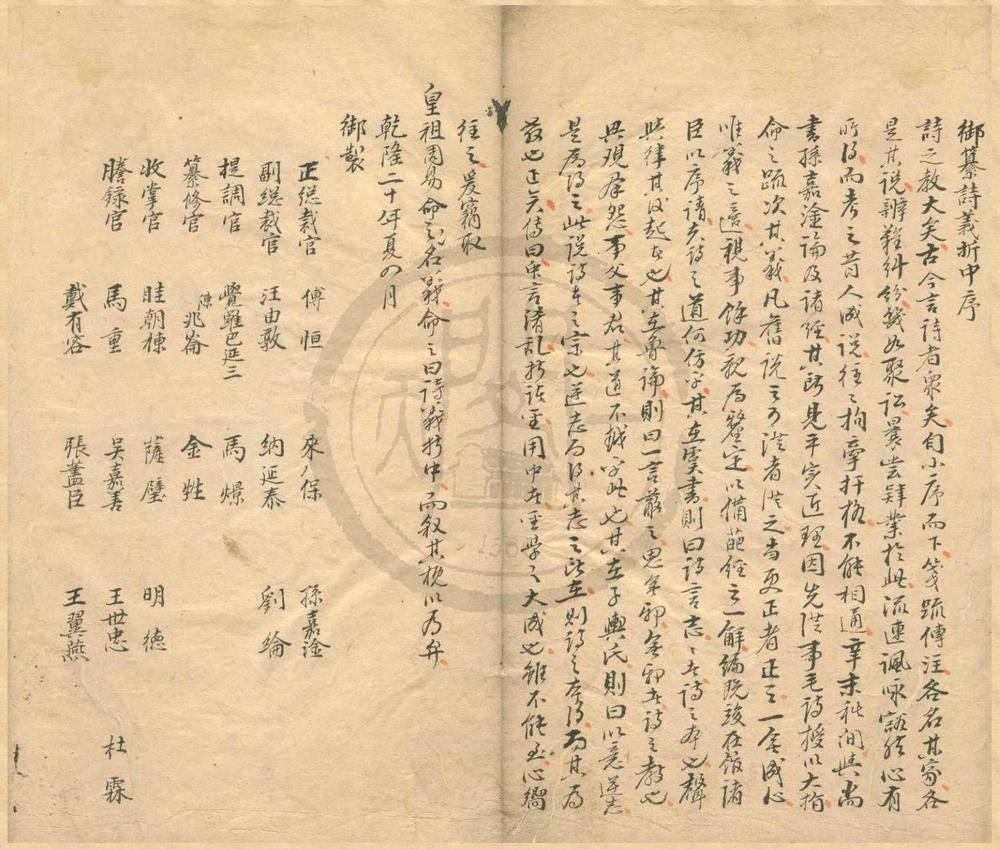 御纂詩義折中序
詩之教大矣古今言詩者衆矣自小序而下箋疏傳注各名其家各
是其說辨難糾紛幾如聚訟曩嘗肄業於此流連諷咏豁然心有
所得而考之昔人成說往〻拘牽扞格不能相通辛未秋間與尚
書孫嘉淦論及諸經其所見平實近理因先從事毛詩授以大指
命之疏次其義凡舊說之可從者從之當更正者正之一矢成心
唯義之適視事餘功親為釐定以備葩經之一解編既竣在館諸
臣以序請夫詩之道何仿乎其在虞書則曰詩言志〻者詩之本也聲
與律其後起者也其在魯論則曰一言蔽之思無邪無邪者詩之教也
興觀羣怨事父事君其道不越乎此也其在子輿氏則曰以意逆志
是為得之此說詩者之宗也逆志而得其志之所在則詩之本得而其為
教也正矣傳曰衆言淆亂折諸聖用中者聖學之大成也雖不能至心嚮
往之爰竊取
皇祖周易命名之義命之曰詩義折中而叙其梗以為弁
乾隆二十年夏四月
御製
正總裁官 傅恒 來保 孫嘉淦
副總裁官 汪由敦 納延泰 劉綸
提調官 覺羅巴延三 馬燝
纂修官 陳兆崙 金甡
收掌官 眭朝棟 薩璧 明德
謄録官 馬重 吳嘉善 王世忠 杜霖
戴有容 張藎臣 王翼燕